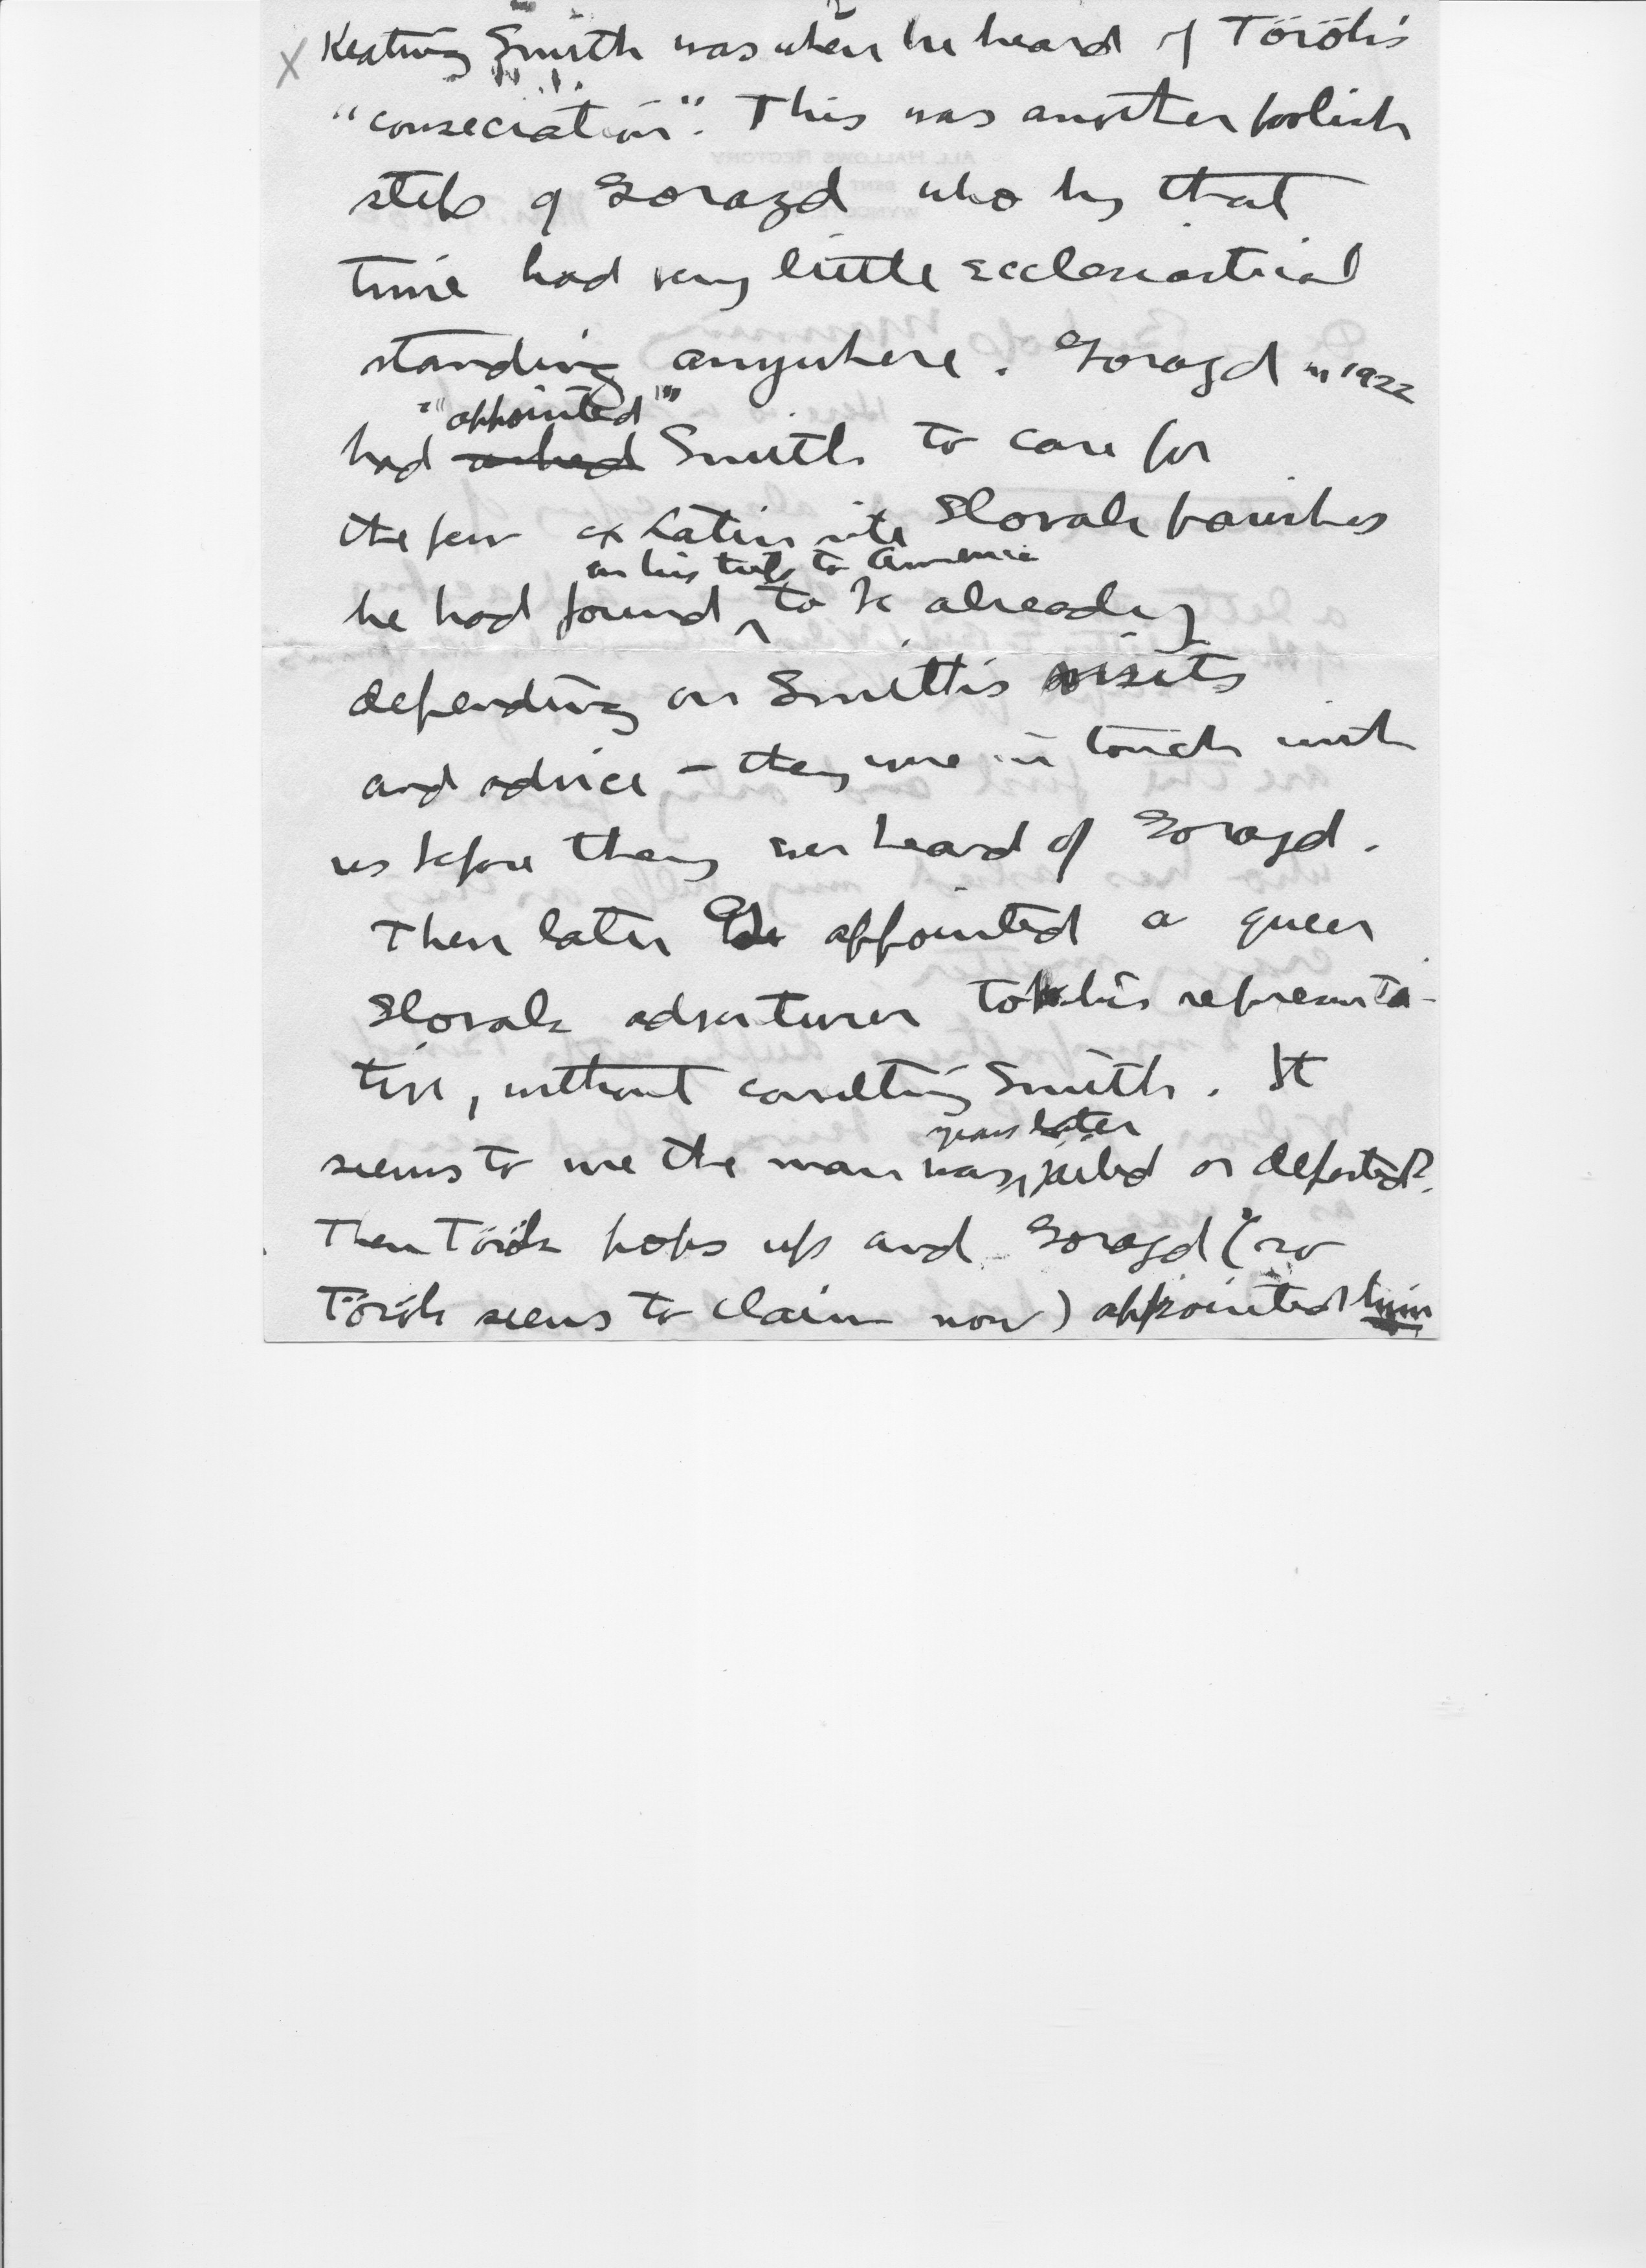 X Keating Smith was when he heard of Török's
"consecration". This was another foolish
step of Gorazd who by that
time had very little ecclesiastical
standing anywhere. Gorazd in 1922
"appointed"
had asked Smith to care for
the few ex Latin rite Slovak parishes
on his trip to America
he had found ^ to be already
depending on Smith's visits
and advice – they were in touch with
us before they ever heard of Gorazd.
Then later G. appointed a queer
Slovak adventurer to be his representa-
tive, without consulting Smith. It
years later
seems to me the man was ^ jailed or deported?.
Then Török pops up and Gorazd (so
Török seems to claim now) appointed him